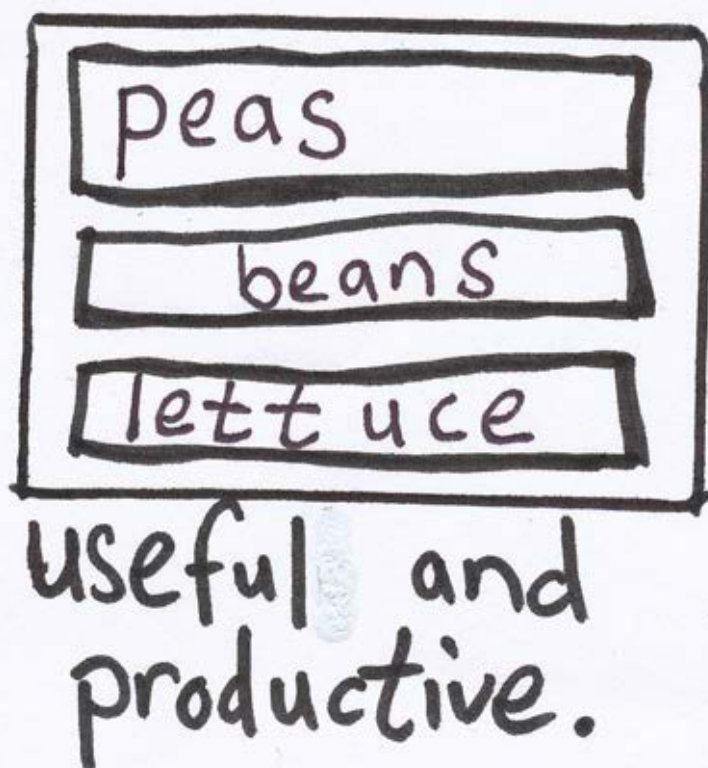 peas
beans
lettuce
useful and
productive.